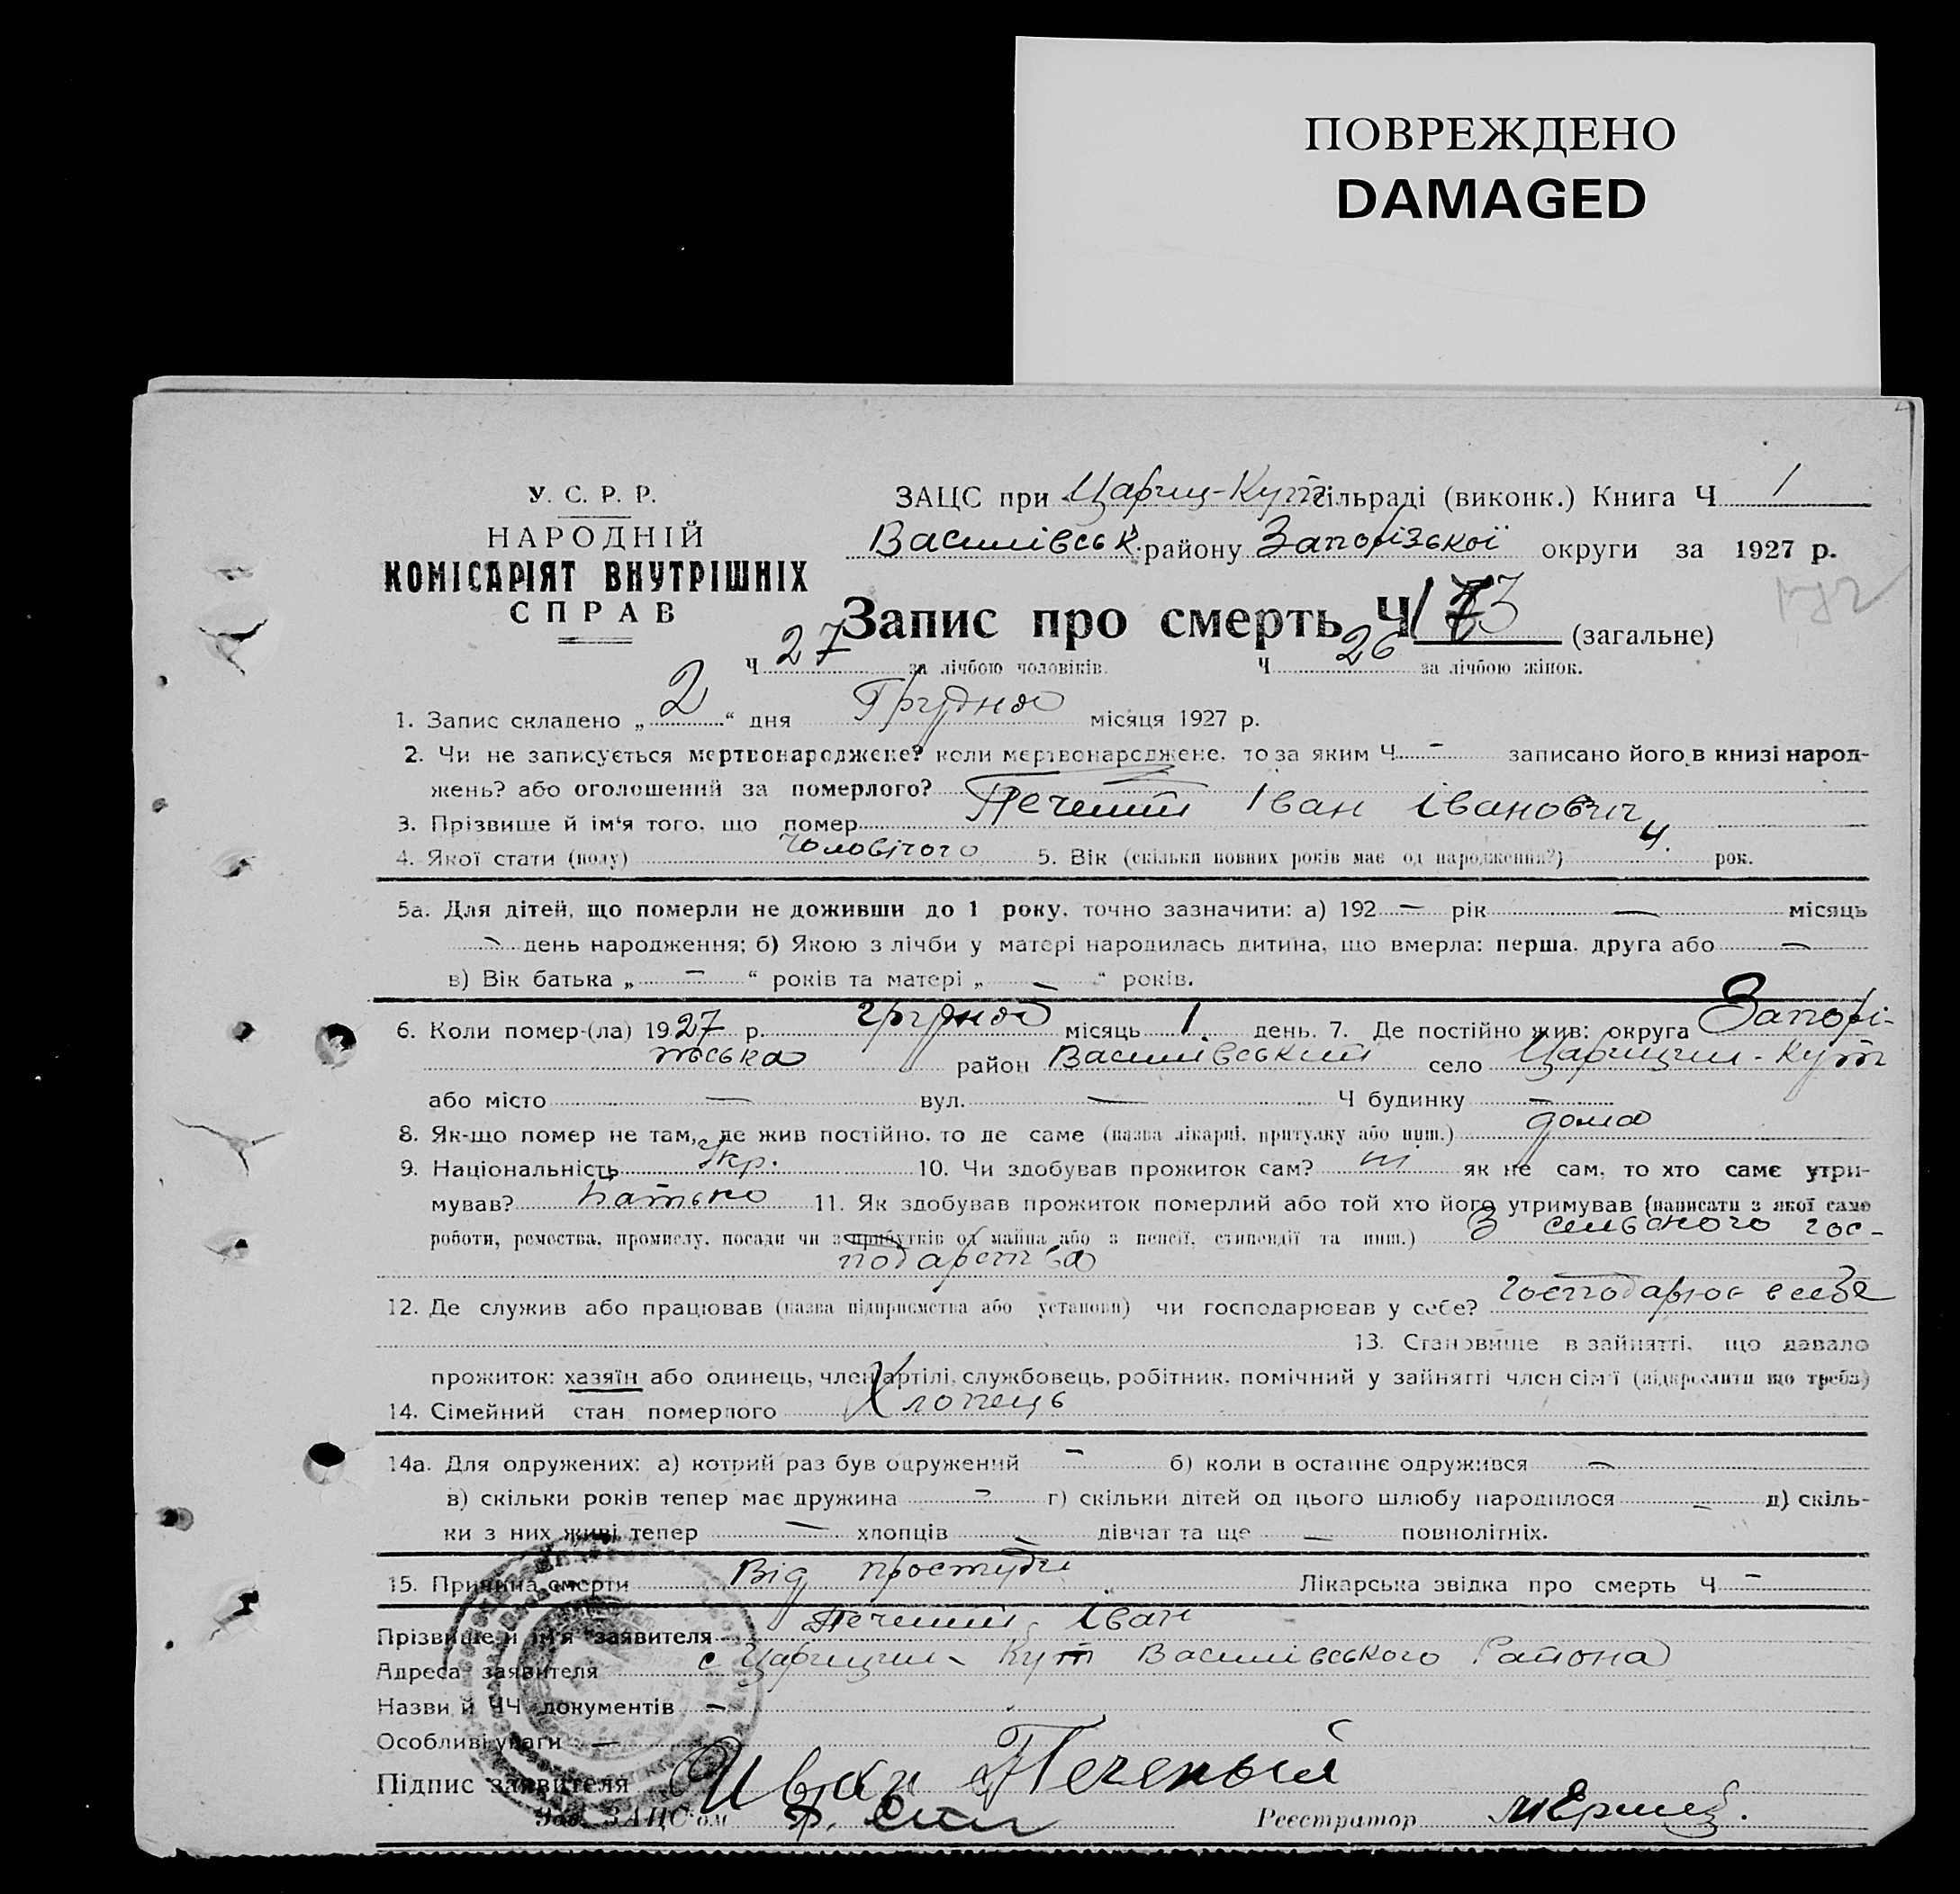 ПОВРЕЖДЕНО
DAMAGED
У. С. Р. Р.
НАРОДНІЙ
КОМІСАРІЯТ ВНУТРІШНІХ
СПРАВ
ЗАЦС при Цариц-Кут сільраді (виконк.) Книга Ч 1
Василівськ. району Запорізької округи за 1927 р.
Запис про смерть Ч (загальне)
Ч 27 за лічбою чоловіків. Ч 26 за лічбою жінок.
1. Запис складено „ 2 “ дня Грудня місяця 1927 р.
2. Чи не записується мертвонароджене? коли мертвонароджене, то за яким Ч - записано його в книзі народ-
жень? або оголошений за померлого?
3. Прізвище й ім'я того, що помер Печений Іван Іванович
4. Якої статі (полу) Чоловічого 5. Вік (скільки повних років має од народження?) 4. рок.
5а. Для дітей, що померли не доживши до 1 року, точно зазначити: а) 192 — рік — місяць
— день народження; б) Якою з лічби у матері народилась дитина, що вмерла: перша, друга або —
в) Вік батька „ — “ років та матері „ — “ років.
6. Коли помер-(ла) 1927 р. грудня місяць 1 день. 7. Де постійно жив: округа Запорі-
жська район Василівський село Царицин-Кут
або місто — вул. — Ч будинку —
8. Як-що помер не там, де жив постійно, то де саме (назва лікарні, притулку або инш.) дома
9. Національність Укр. 10. Чи здобував прожиток сам? ні як не сам, то хто саме утри-
мував? батько 11. Як здобував прожиток померлий або той хто його утримував (написати з якої саме
роботи, ремества, промислу, посади чи з прибутків од майна або з пенсії, стипендії та инш.) З сельского гос-
подарства
12. Де служив або працював (назва підприємства або установи) чи господарював у себе? Господарює в себе
13. Становище в зайнятті, що давало
прожиток: хазяїн або одинець, член артілі, службовець, робітник, помічний у зайнятті член сім'ї (підкреслити що треба)
14. Сімейний стан померлого Хлопець
14а. Для одружених: а) котрий раз був одружений — б) коли в останнє одружився —
в) скільки років тепер має дружина — г) скільки дітей од цього шлюбу народилося — д) скіль-
ки з них живі тепер — хлопців — дівчат та ще — повнолітніх.
15. Причина смерти Від простуди Лікарська звідка про смерть Ч —
Прізвище й ім'я заявителя Печений Іван
Адреса заявителя с Царицин-Кут Василівського Района
Назви й ЧЧ документів —
Особливі уваги —
Підпис заявителя Иван Печеный
Зав. ЗАЦС'ом Реєстратор